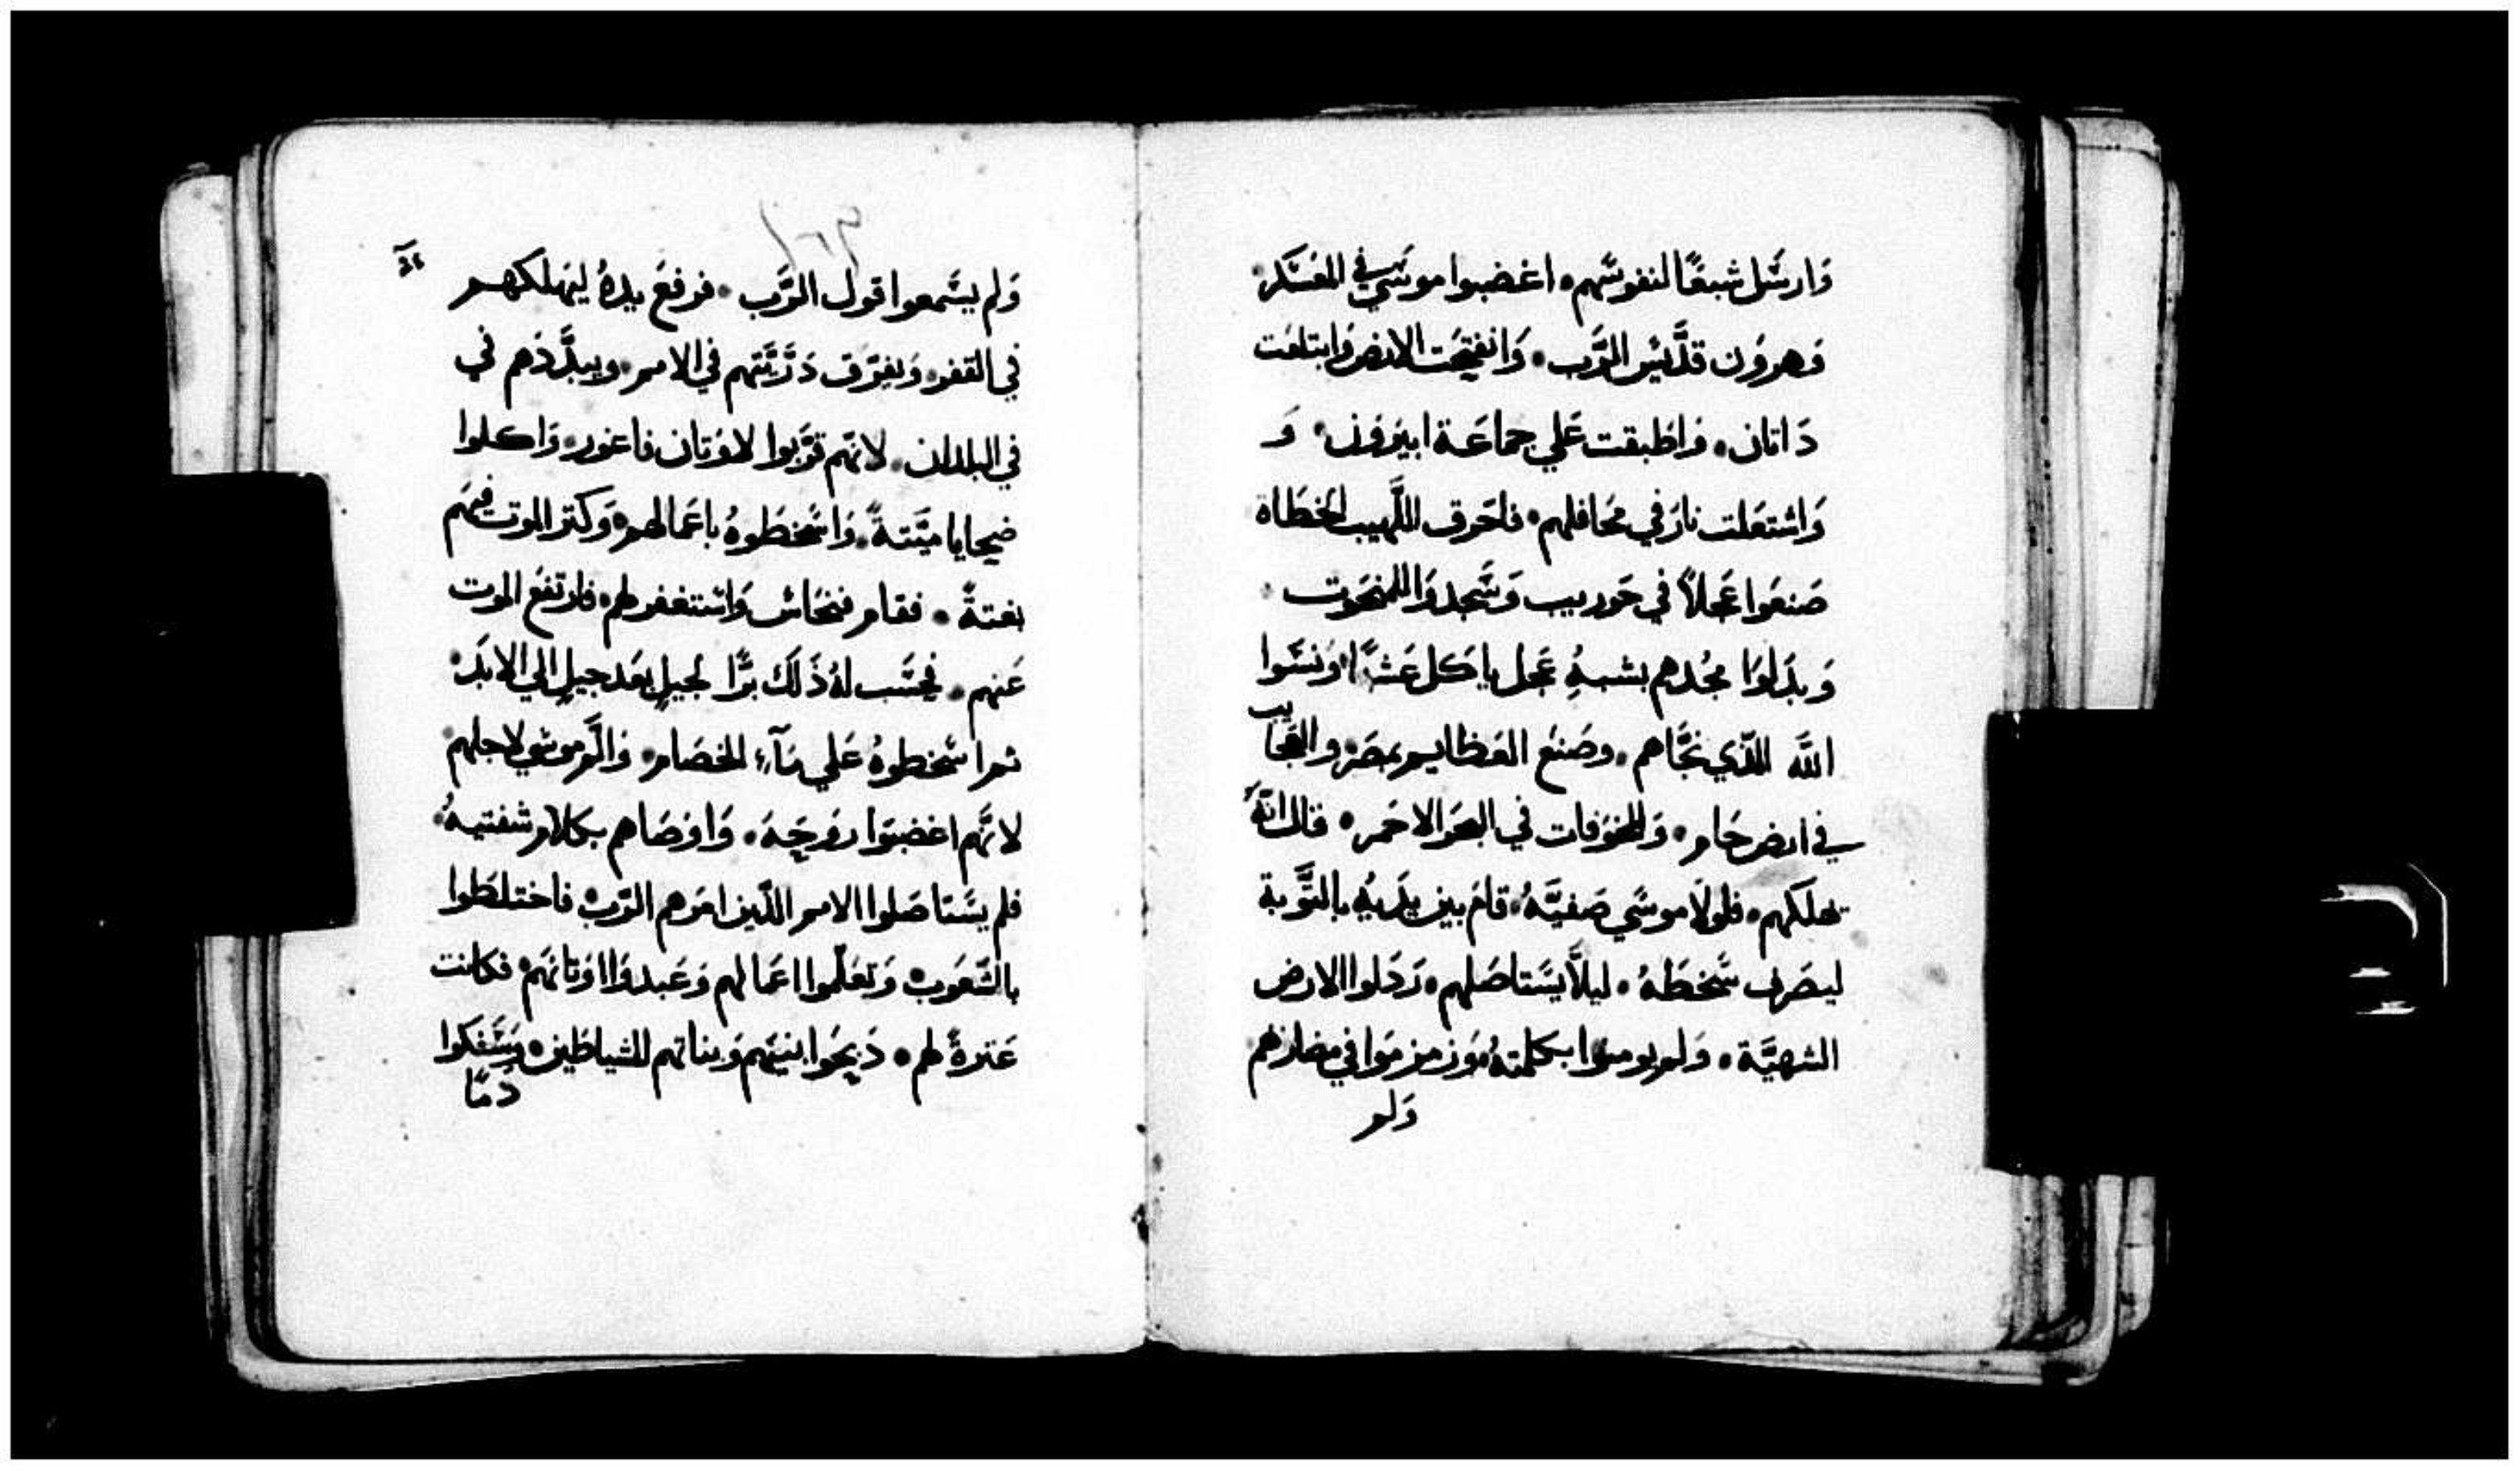 وَارسَل شبعًا لنفوسَهم • اغضبوا موسَي في المعَسَكر •
وَهروَن قدَّيس الرَّب • وَانفتِحَت الارض وَابتلعَت
دَاتان • وَاطبقت عَلي جماعَة ابيروَن • وَ
وَاشتعَلت نارَ في مَحافلهم • فاحَرق اللَّهيب الخطَاه
صَنعَوا عَجلاً في حَوريب وَسَجدوَا للمنحَوت •
وَبدَلوَا مجُدهم بشبهُِ عَجل ياكل عَشبًا • وَنسَوا
اللَّه اللذّي نجَّاهم • وصَنعَ العَظايم بمصَر • والعَجَايب
في ارض حَام • وَالمخوَفات في البحَر الاحَمر • قال انَّهُ
تهلَكهم • فلولاَ موسَي صَفيَّهُ • قامَ بين يدَيهِ بالتوَّبة
ليصَرف سَخطَهُ • ليلاَّ يسَتاصَلهم • رَدَلوا الارض
الشهيَّة • وَلم يومنوا بكلمتهُ • وَتزمزمَوا في مضاربهم
وَلم
وَلم يسَمعوا قول الرَّب • فرفعَ يدهُ ليهَلكهم
في القفر • وَيفرّق دَرَّيَّتهم في الامم • ويبدَّدَهم في
في البلدان • لانهّم قرَّبوا لاوَتان فاعغور • وَاكلوا
ضحايا ميَّتةً • وَاسَخطَوهُ باعَمالهم • وَكتر الموت فيهَم
بغتةً • فقام فنحَاس وَاستغفر لهم • فارتفعَ الموت
عَنهم • فحسَب لهُ ذَلكَ برًّا لجيلٍ بعَد جيلٍ الي الابدَ •
تم اسَخطوهُ عَلي مَآءِ الخصَام • وَالَّم موسي لاجلهم
لانهَّم اغضبوَا روَحِهَ • وَاوَصَاهم بكلام شفتيهُ •
فلم يسَتاصَلوا الامم اللذّين امَرهم الرَّب • فاختلطَوا
بالشّعَوب • وَتعَلّموا اعَمالهم وَعَبدوَا اوَتانهَم • فكانت
عَترةً لهم • دَبحَوا بنيهَم وَبناتهم للشياطَين • وَسَفكوا
دمًا